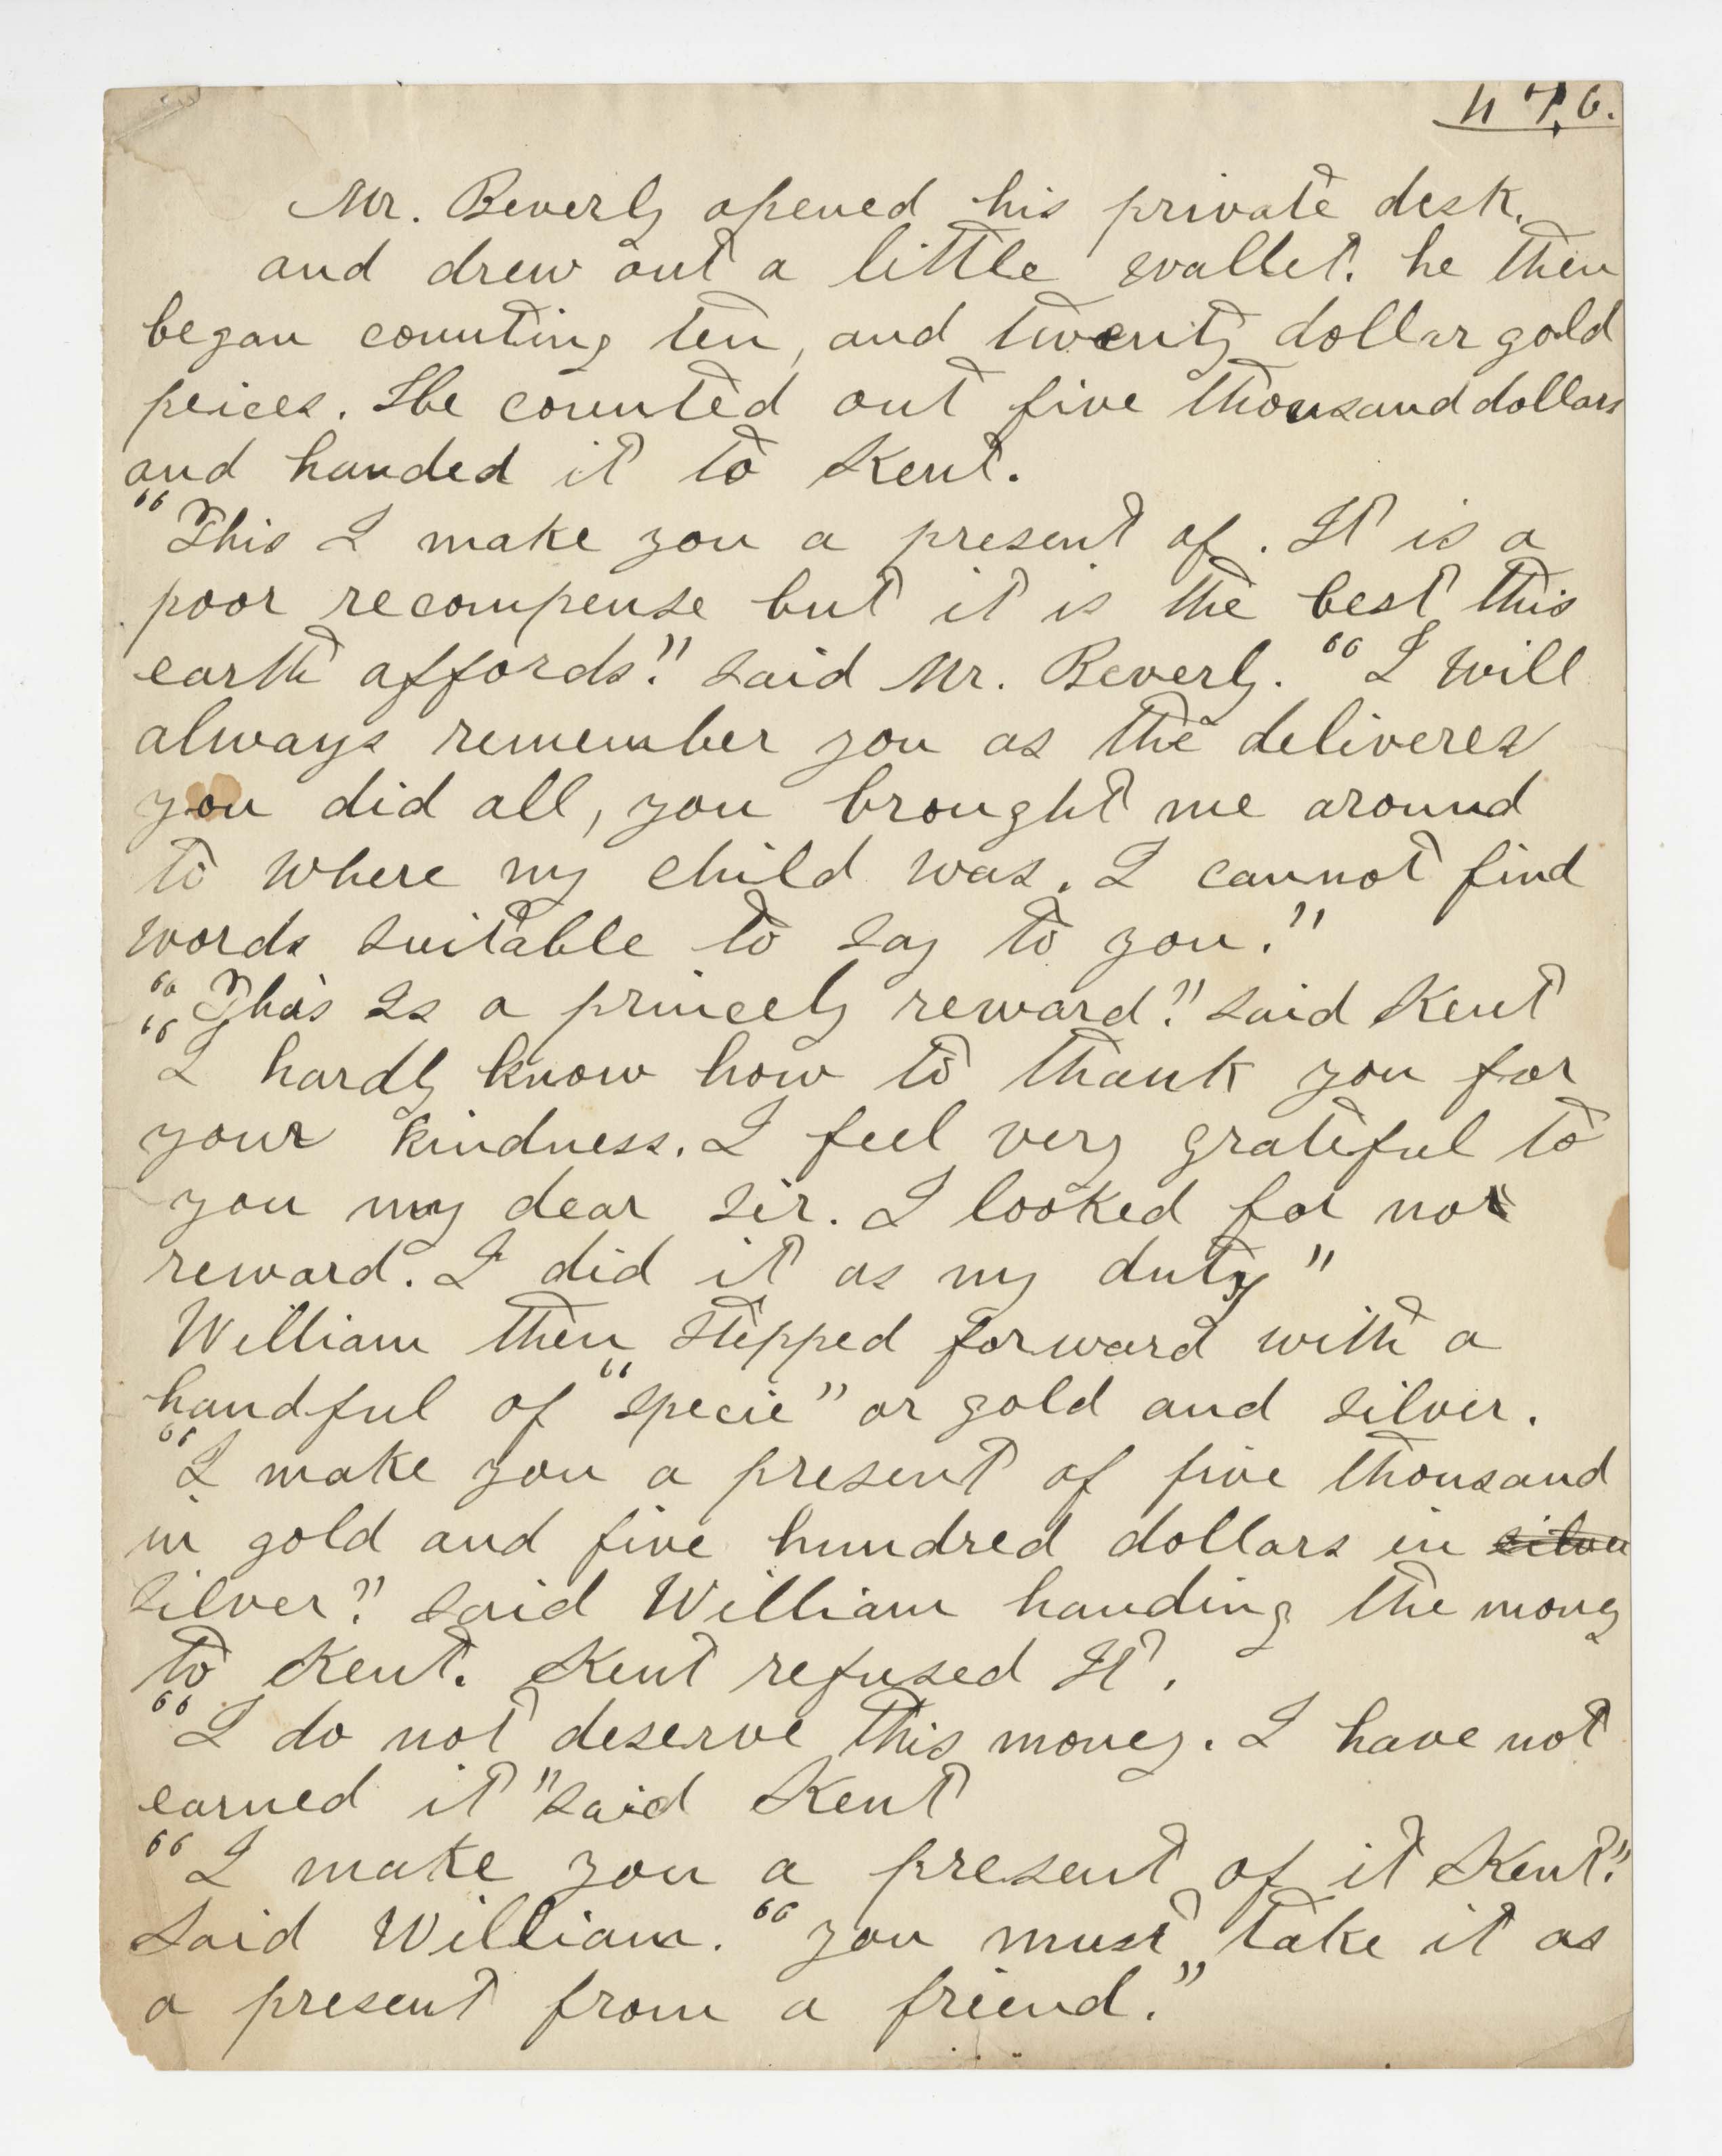 476.
Mr. Beverly opened his private desk.
and drew out a little wallet. he then
began counting ten, and twenty dollar gold
peices. He counted out five thousand dollars
and handed it to Kent.
"This I make you a present of. It is a
poor recompense but it is the best this
earth affords." said Mr. Beverly. "I will
always remember you as the deliverer
you did all, you brought me around
to where my child was. I cannot find
words suitable to say to you."
"This is a princely reward." said Kent
"I hardly know how to thank you for
your kindness. I feel very grateful to
you my dear sir. I looked for no
reward. I did it as my duty"
William then stepped forward with a
handful of "specie" or gold and silver.
"I make you a present of five thousand
in gold and five hundred dollars in silver
silver." said William handing the mony
to Kent. Kent refused It.
"I do not deserve this money. I have not
earned it" said Kent
"I make you a present of it Kent."
said William. "you must take it as
a present from a friend."